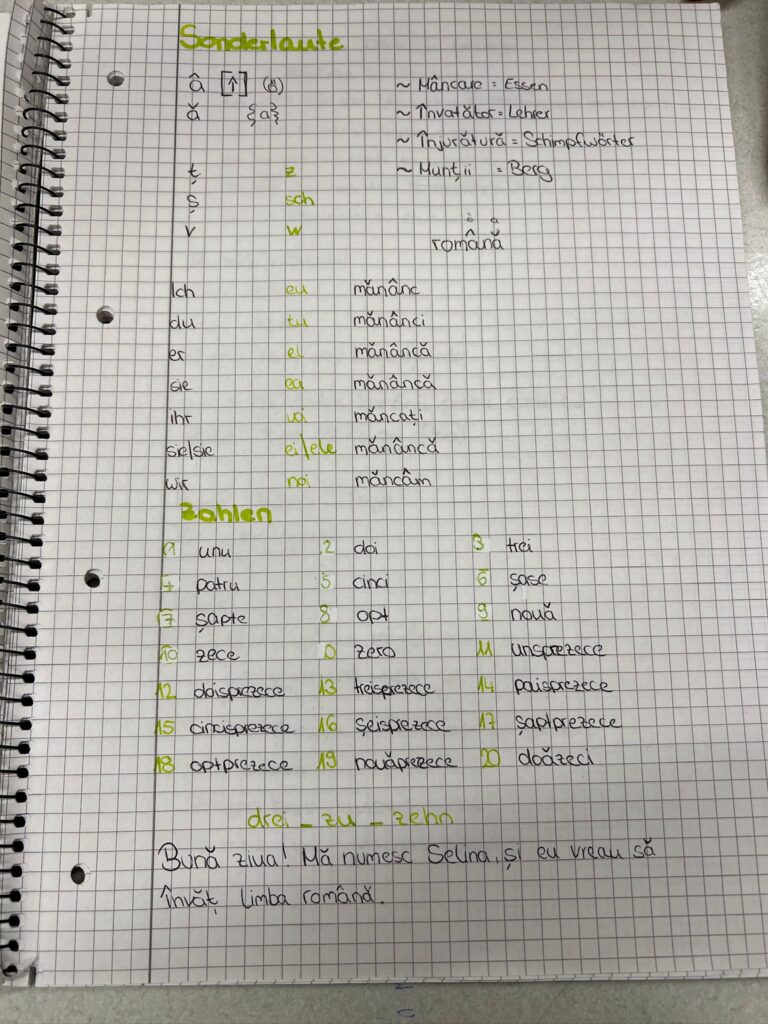 Sonderlaute
â [↑] (ö) ~ Mâncare = Essen
ă {a} ~ Învatător = Lehrer
~ Înjurătură = Schimpfwörter
ț z ~ Munții = Berg
ș sch
v w
ö a
română
Ich eu mănânc
du tu mănânci
er el mănâncă
sie ea mănâncă
ihr voi măncați
sie/sie ei/ele mănâncă
wir noi măncâm
Zahlen
1 unu 2 doi 3 trei
4 patru 5 cinci 6 șase
7 șapte 8 opt 9 nouă
10 zece 0 zero 11 unsprezece
12 doisprezece 13 treisprezece 14 paisprezece
15 cincisprezece 16 șeisprezece 17 șaptprezece
18 optprezece 19 nouăprezece 20 doăzeci
drei - zu - zehn
Bună ziua! Mă numesc Selina, și eu vreau să
învăț limba română.